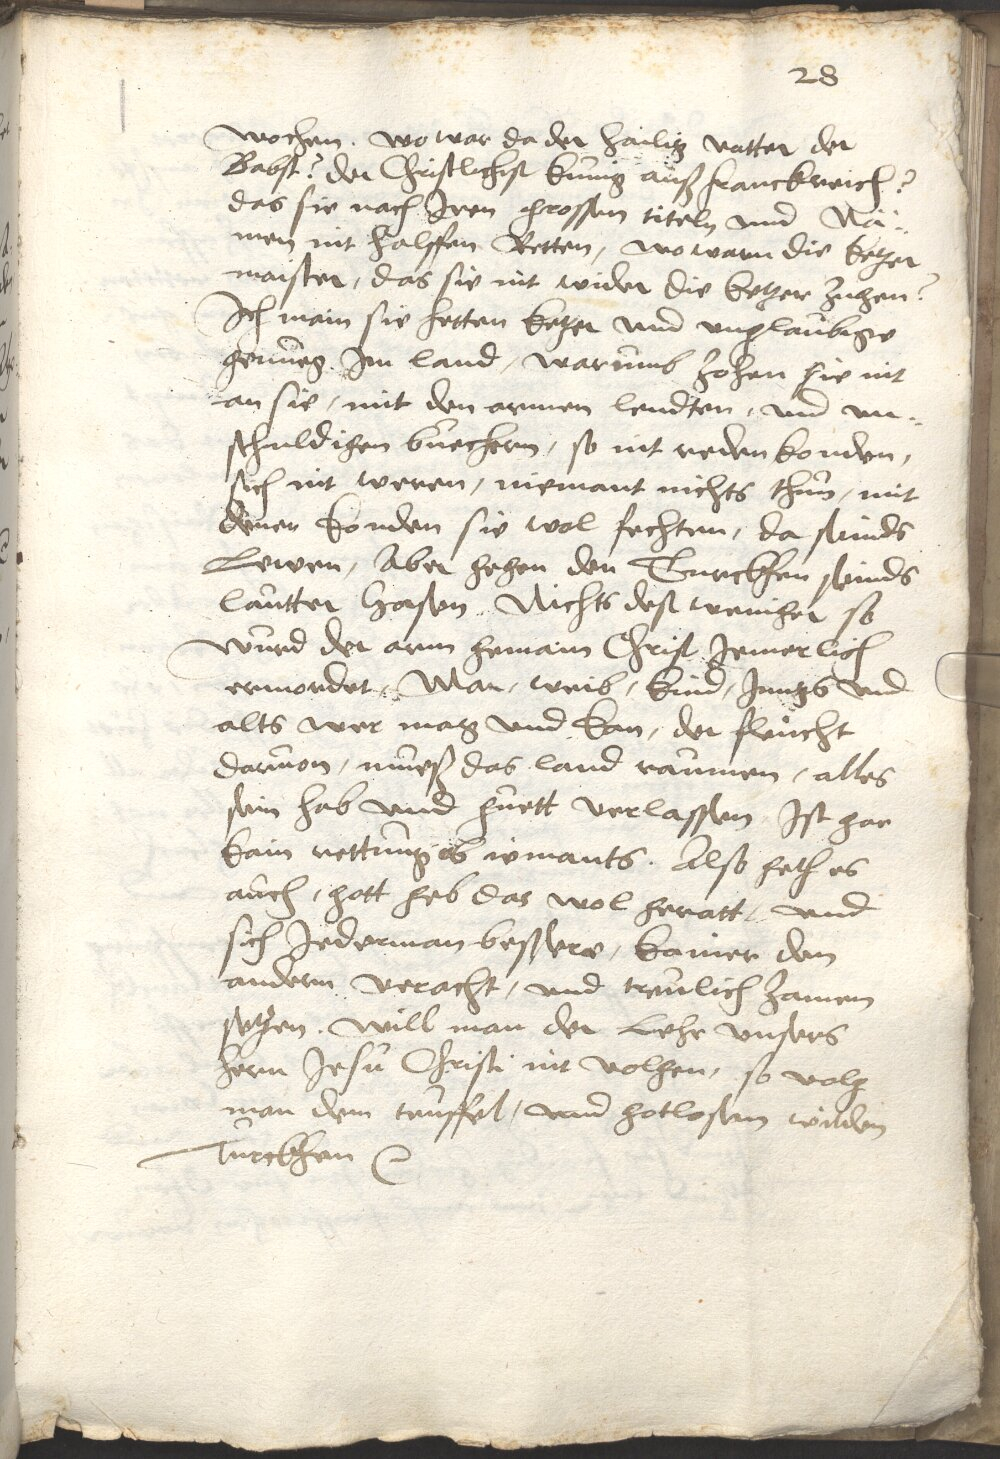 28
wochen. wo war da der hailig vatter der
Babst? der Christlichist kunig auß franckreich?
das sie nach Iren grossen titeln und Nä-
men nit halffen Retten, wo warn die ketzer
maister, das sie nit wider die ketzer zugen?
Ich main sie hetten ketzer und unglaubige
genueg Im land, warumb zohen sie nit
an sie, mit den armen leudten, und un-
schuldigen buechern, so nit reden konden,
sich nit weren, niemant nichts thun, mit
denen konden sie wol fechten, da seinds
Lewen, Aber gegen den Turckhen seinds
lautter Hasen. Nichts dest weniger so
wurd der arm gemain Christ Jemerlich
ermordet, Man, weib, kind, Jungs und
alts wer mag und kan, der fleucht
darvon, mueß das land raumen, alles
sein hab und guett verlassen. Ist gar
kain rettung niemants. Also geth es
auch, gott geb das wol geratt, und
sich Jederman bessere, kainer den
andern veracht, und treulich zamen
setzen. will man der Lehr unsers
hern Jesu Christi nit volgen, so volg
man dem teuffel, und gotlosen wilden
Turckhen